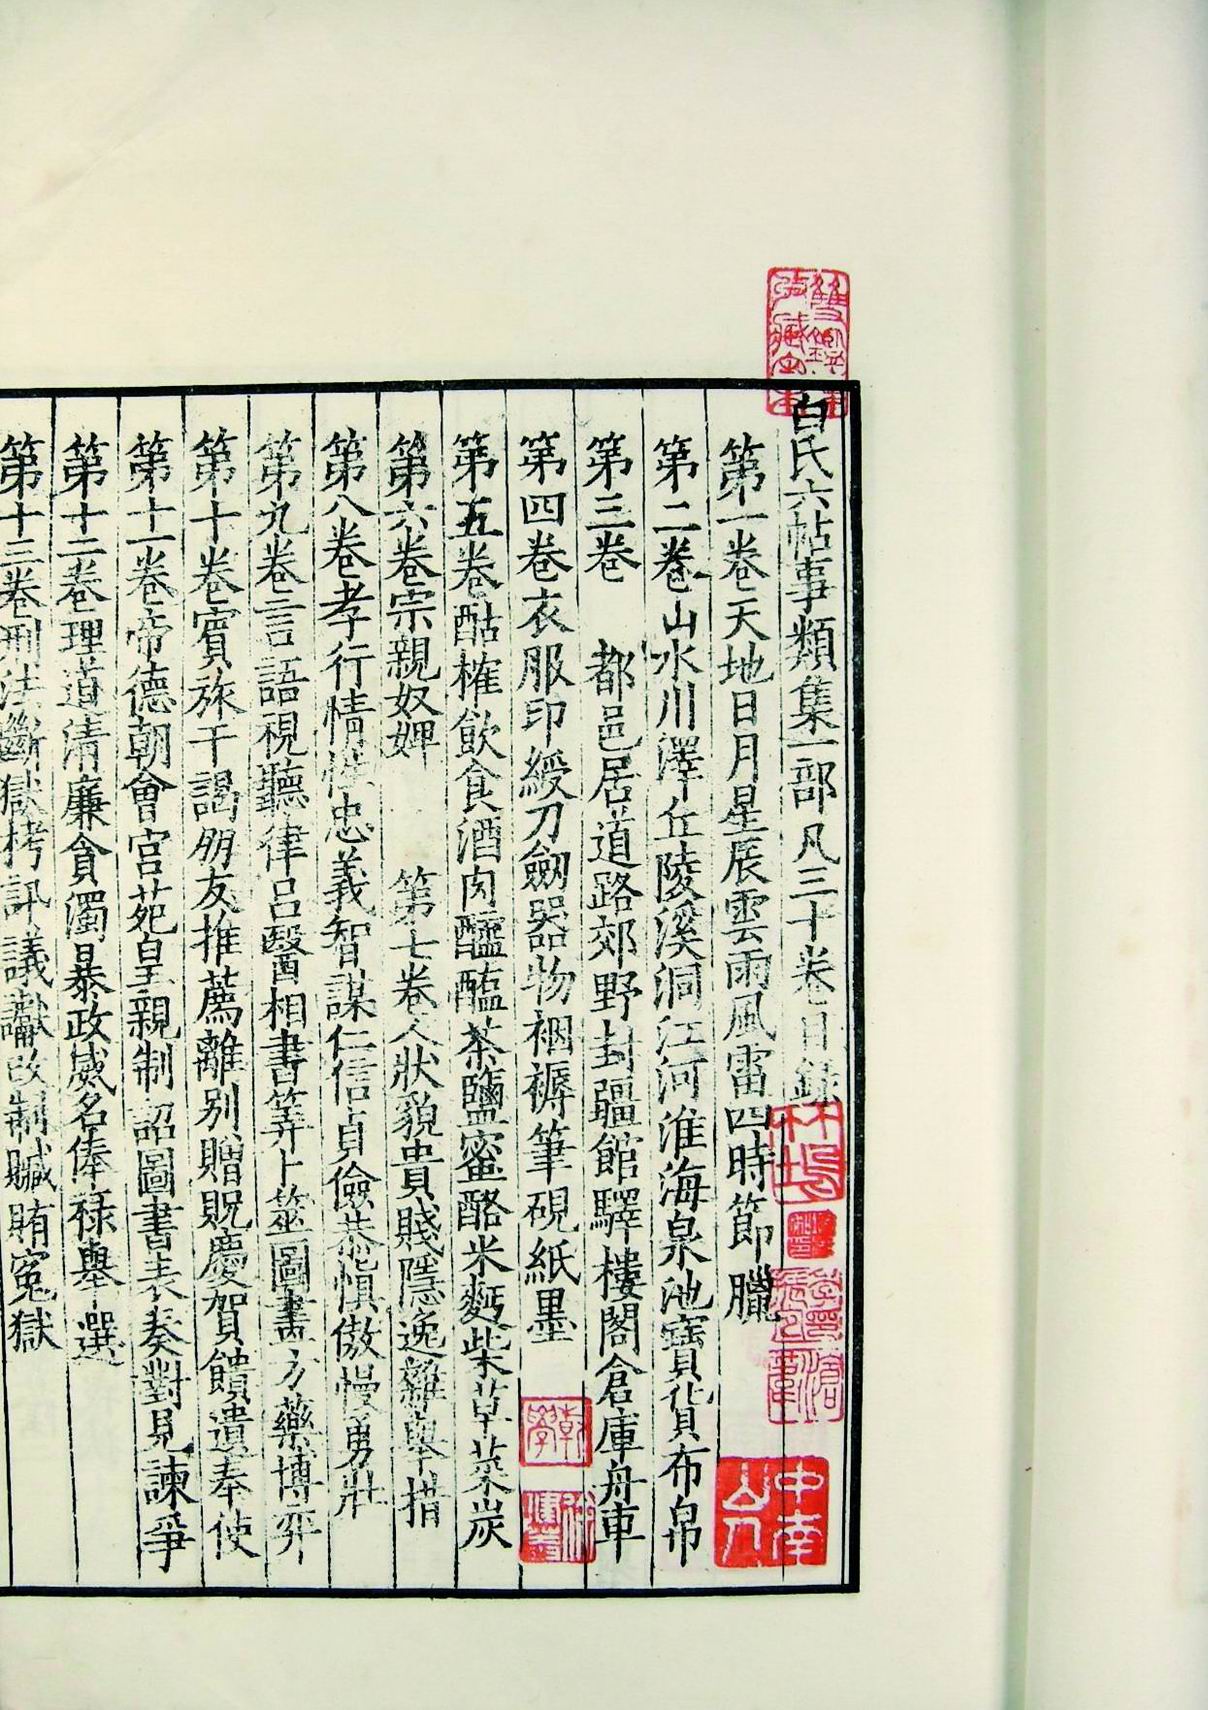 白氏六帖事類集一部凡三十卷目錄
第一卷天地日月星辰雲雨風雷四時節臘
第二卷山水川澤丘陵溪洞江河淮海泉池寶貨布帛
第三卷 都邑居道路郊野封疆館驛樓閣倉庫舟車
第四卷衣服印綬刀劒器物裀褥筆硯紙墨
第五卷酤榷飲食酒肉醯醢茶鹽蜜酪米麪柴草菜炭
第六卷宗親奴婢 第七卷人狀貌貴賤隱逸雜舉措
第八卷孝行情性忠義智謀仁信貞儉恭懼傲慢勇壯
第九卷言語視聽律呂醫相書筭卜筮圖畫方藥博弈
第十卷賓旅干謁朋友推薦離別贈貺慶賀饋遺奉使
第十一卷帝德朝會宮苑皇親制詔圖書表奏對見諫爭
第十二卷理道清廉貪濁暴政威名俸祿舉選
第十三卷刑法斷獄拷訊議讞改制贓賄冤獄
中南山人